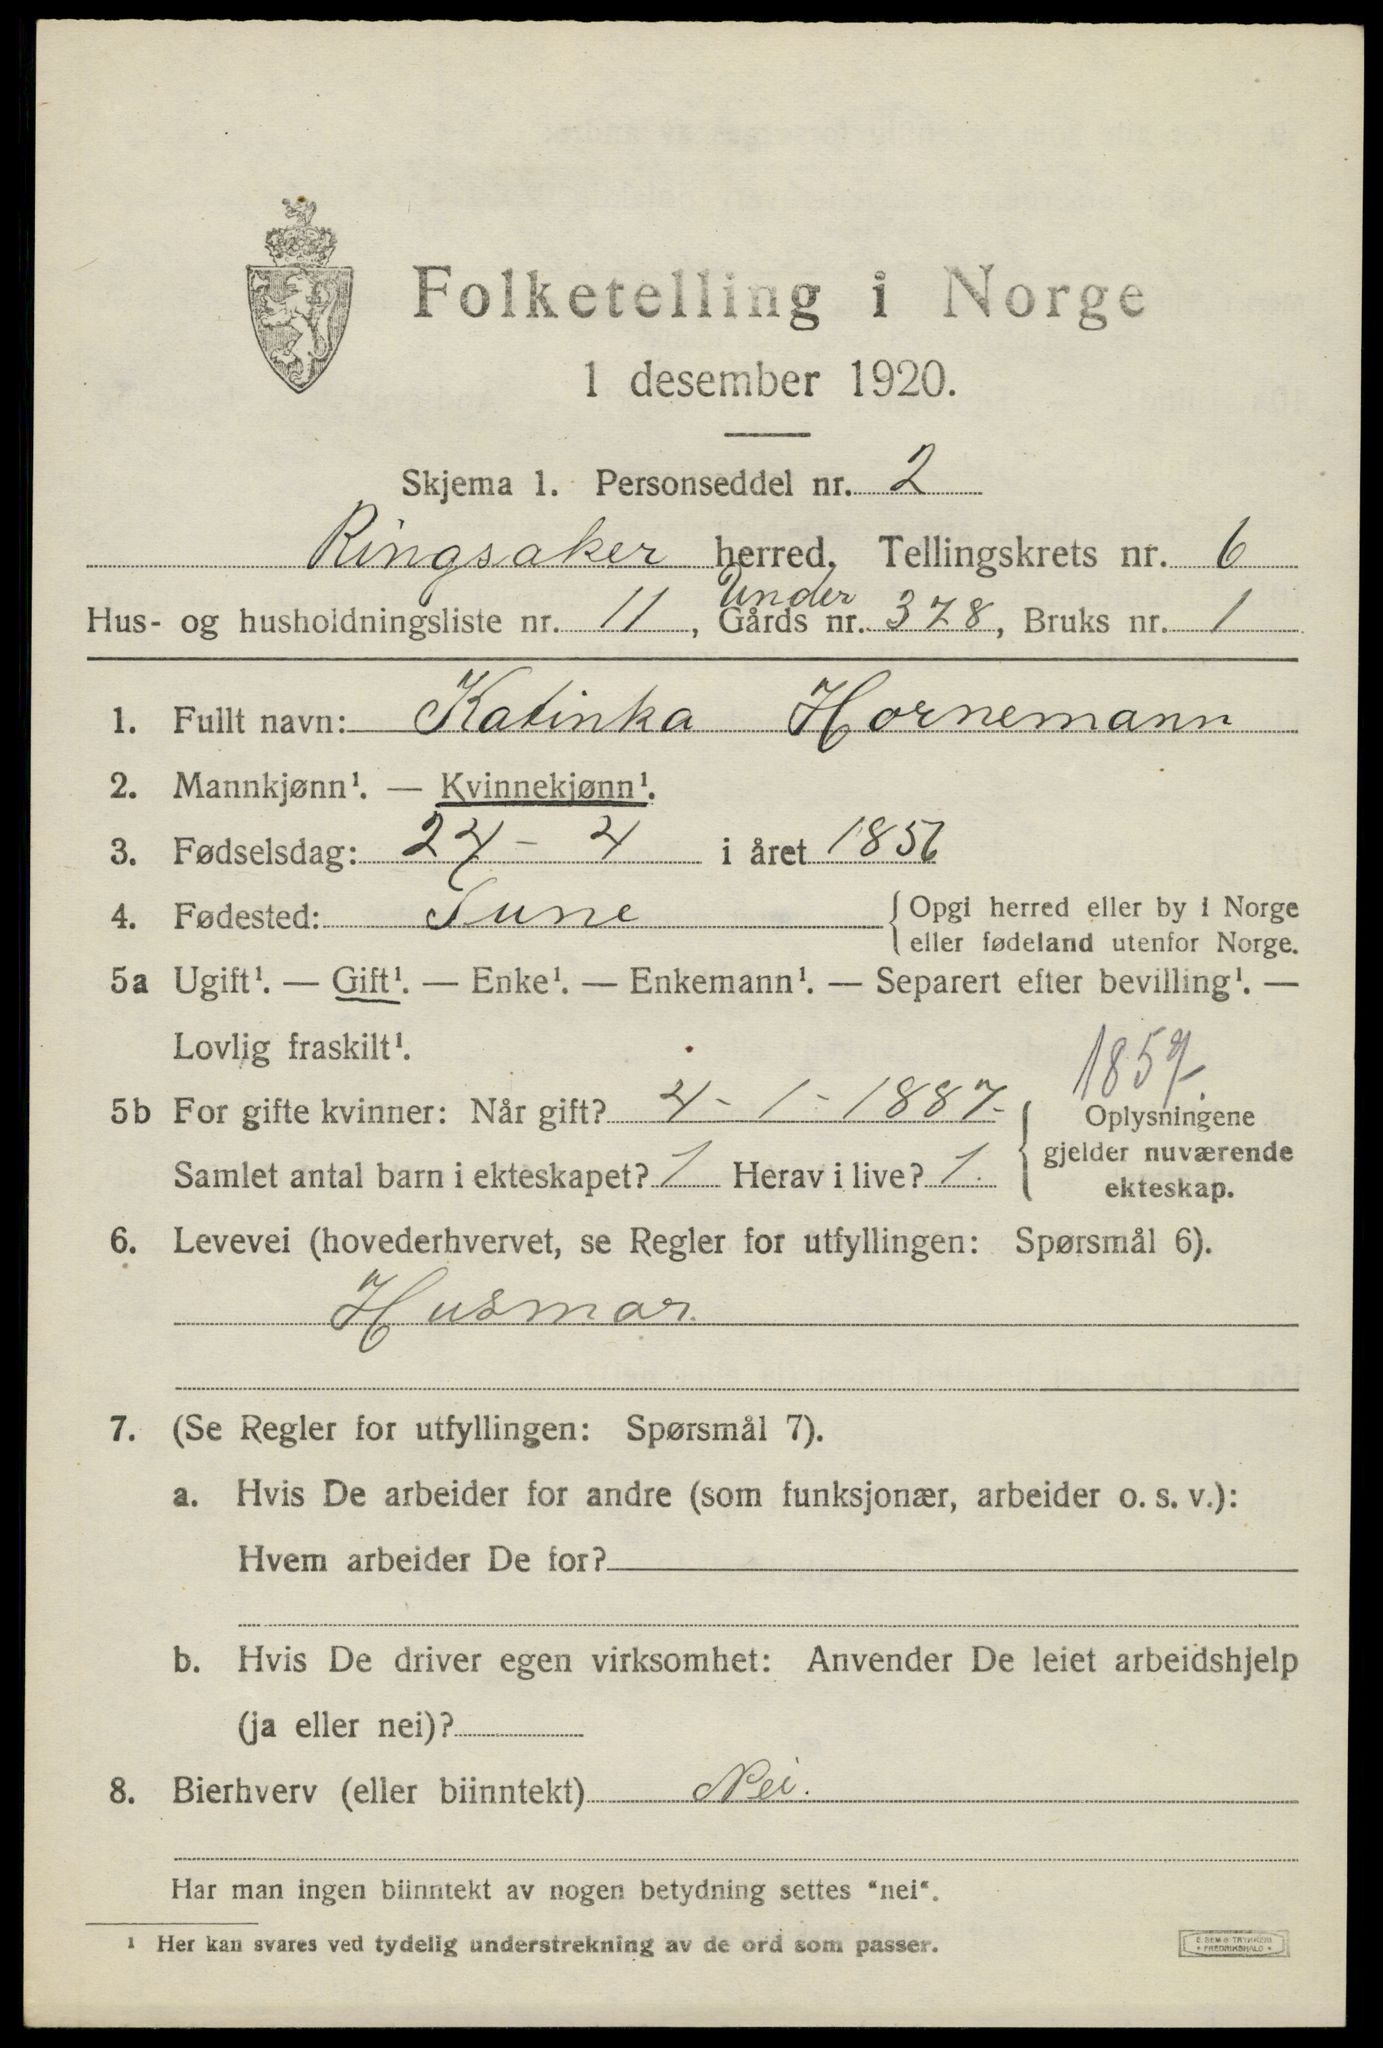 Folketelling i Norge
1 desember 1920.
Skjema 1. Personseddel nr. 2
Ringsaker herred. Tellingskrets nr. 6
Under
Hus- og husholdningsliste nr. 11, Gårds nr. 378, Bruks nr. 1
1. Fullt navn: Katinka Hornemann
2. Mannkjønn¹. — Kvinnekjønn¹.
3. Fødselsdag: 24 - 4 i året 1856
4. Fødested: Tune { Opgi herred eller by i Norge
eller fødeland utenfor Norge.
5a Ugift¹. — Gift¹. — Enke¹. — Enkemann¹. — Separert efter bevilling¹. —
Lovlig fraskilt¹.
1859
5b For gifte kvinner: Når gift? 4 - 1 - 1887. { Oplysningene
gjelder nuværende
Samlet antal barn i ekteskapet? 1 Herav i live? 1.
ekteskap.
6. Levevei (hovederhvervet, se Regler for utfyllingen: Spørsmål 6).
Husmor.
7. (Se Regler for utfyllingen: Spørsmål 7).
a. Hvis De arbeider for andre (som funksjonær, arbeider o. s. v.):
Hvem arbeider De for?
b. Hvis De driver egen virksomhet: Anvender De leiet arbeidshjelp
(ja eller nei)?
8. Bierhverv (eller biinntekt) Nei.
Har man ingen biinntekt av nogen betydning settes "nei".
¹ Her kan svares ved tydelig understrekning av de ord som passer.
E. SEM'S TRYKKERI
FREDRIKSHALD